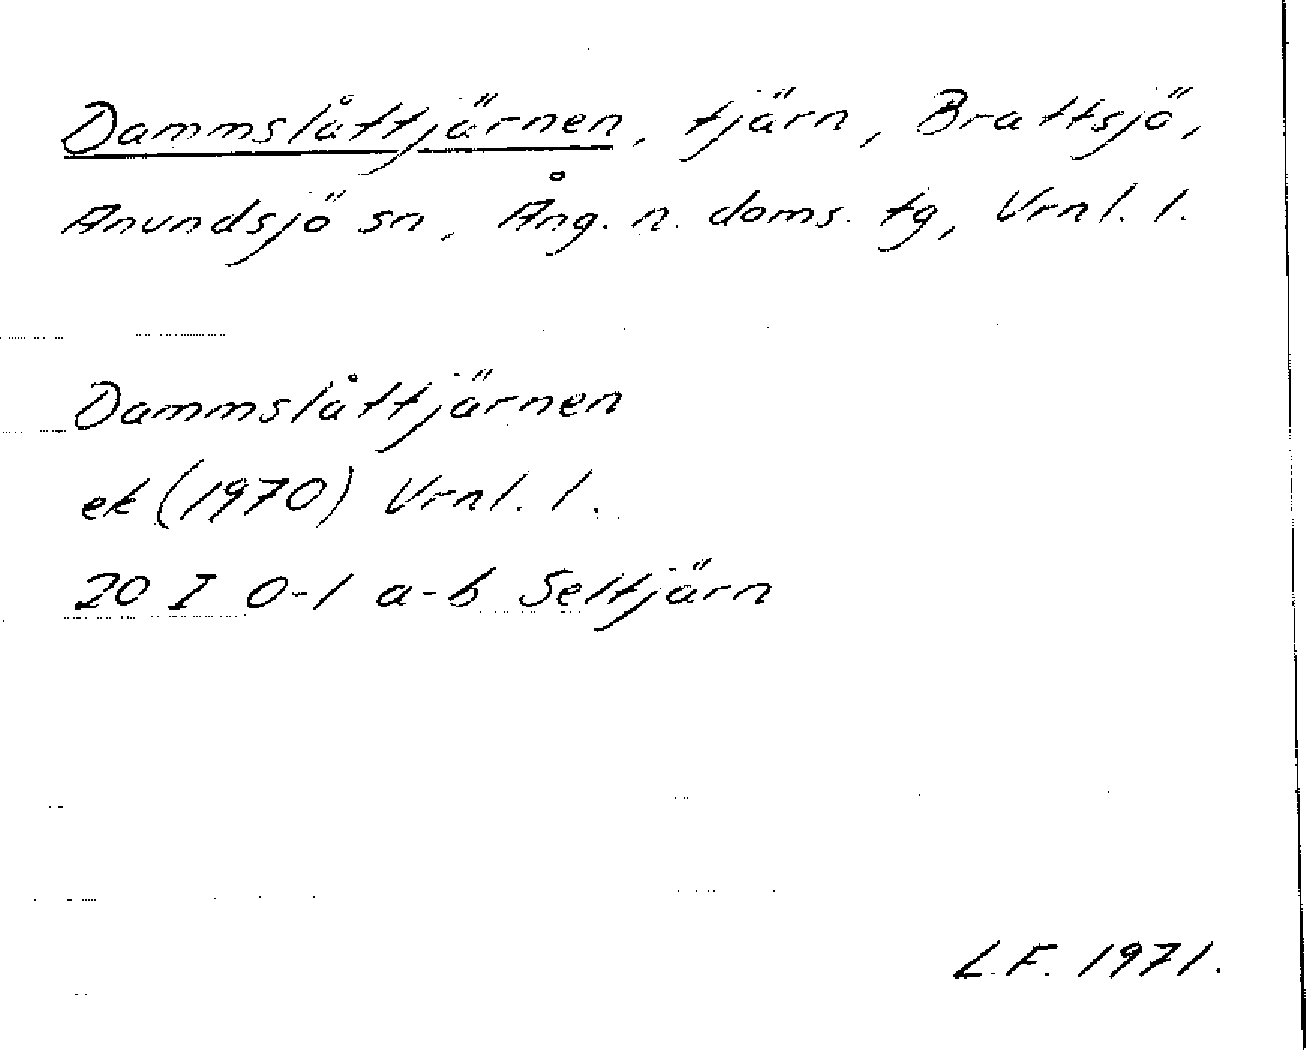 Dammslåttjärnen, tjärn, Brattsjö,
Anundsjö sn, Ång. n. doms. tg, Vrnl. l.
Dammslåttjärnen
ek (1970) Vrnl. l.
20 I 0-1 a-b Seltjärn
L.F. 1971.